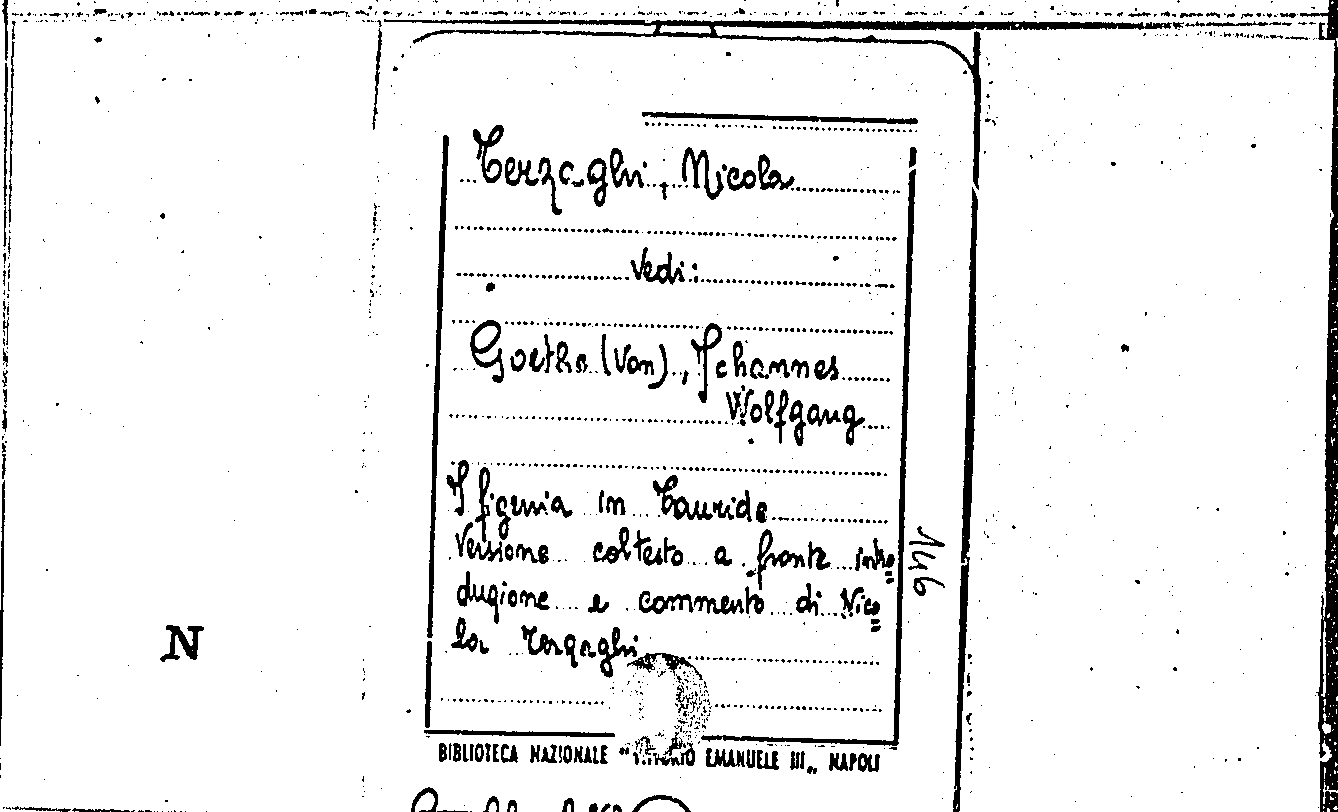 Terzaghi, Nicola
Vedi:
Goethe (Von), Johannes
Wolfgang
Ifigenia in Tauride
Versione col testo a fronte intro=
duzione e commento di Nico=
la Terzaghi
146
N
BIBLIOTECA NAZIONALE "VITTORIO EMANUELE III„ NAPOLI